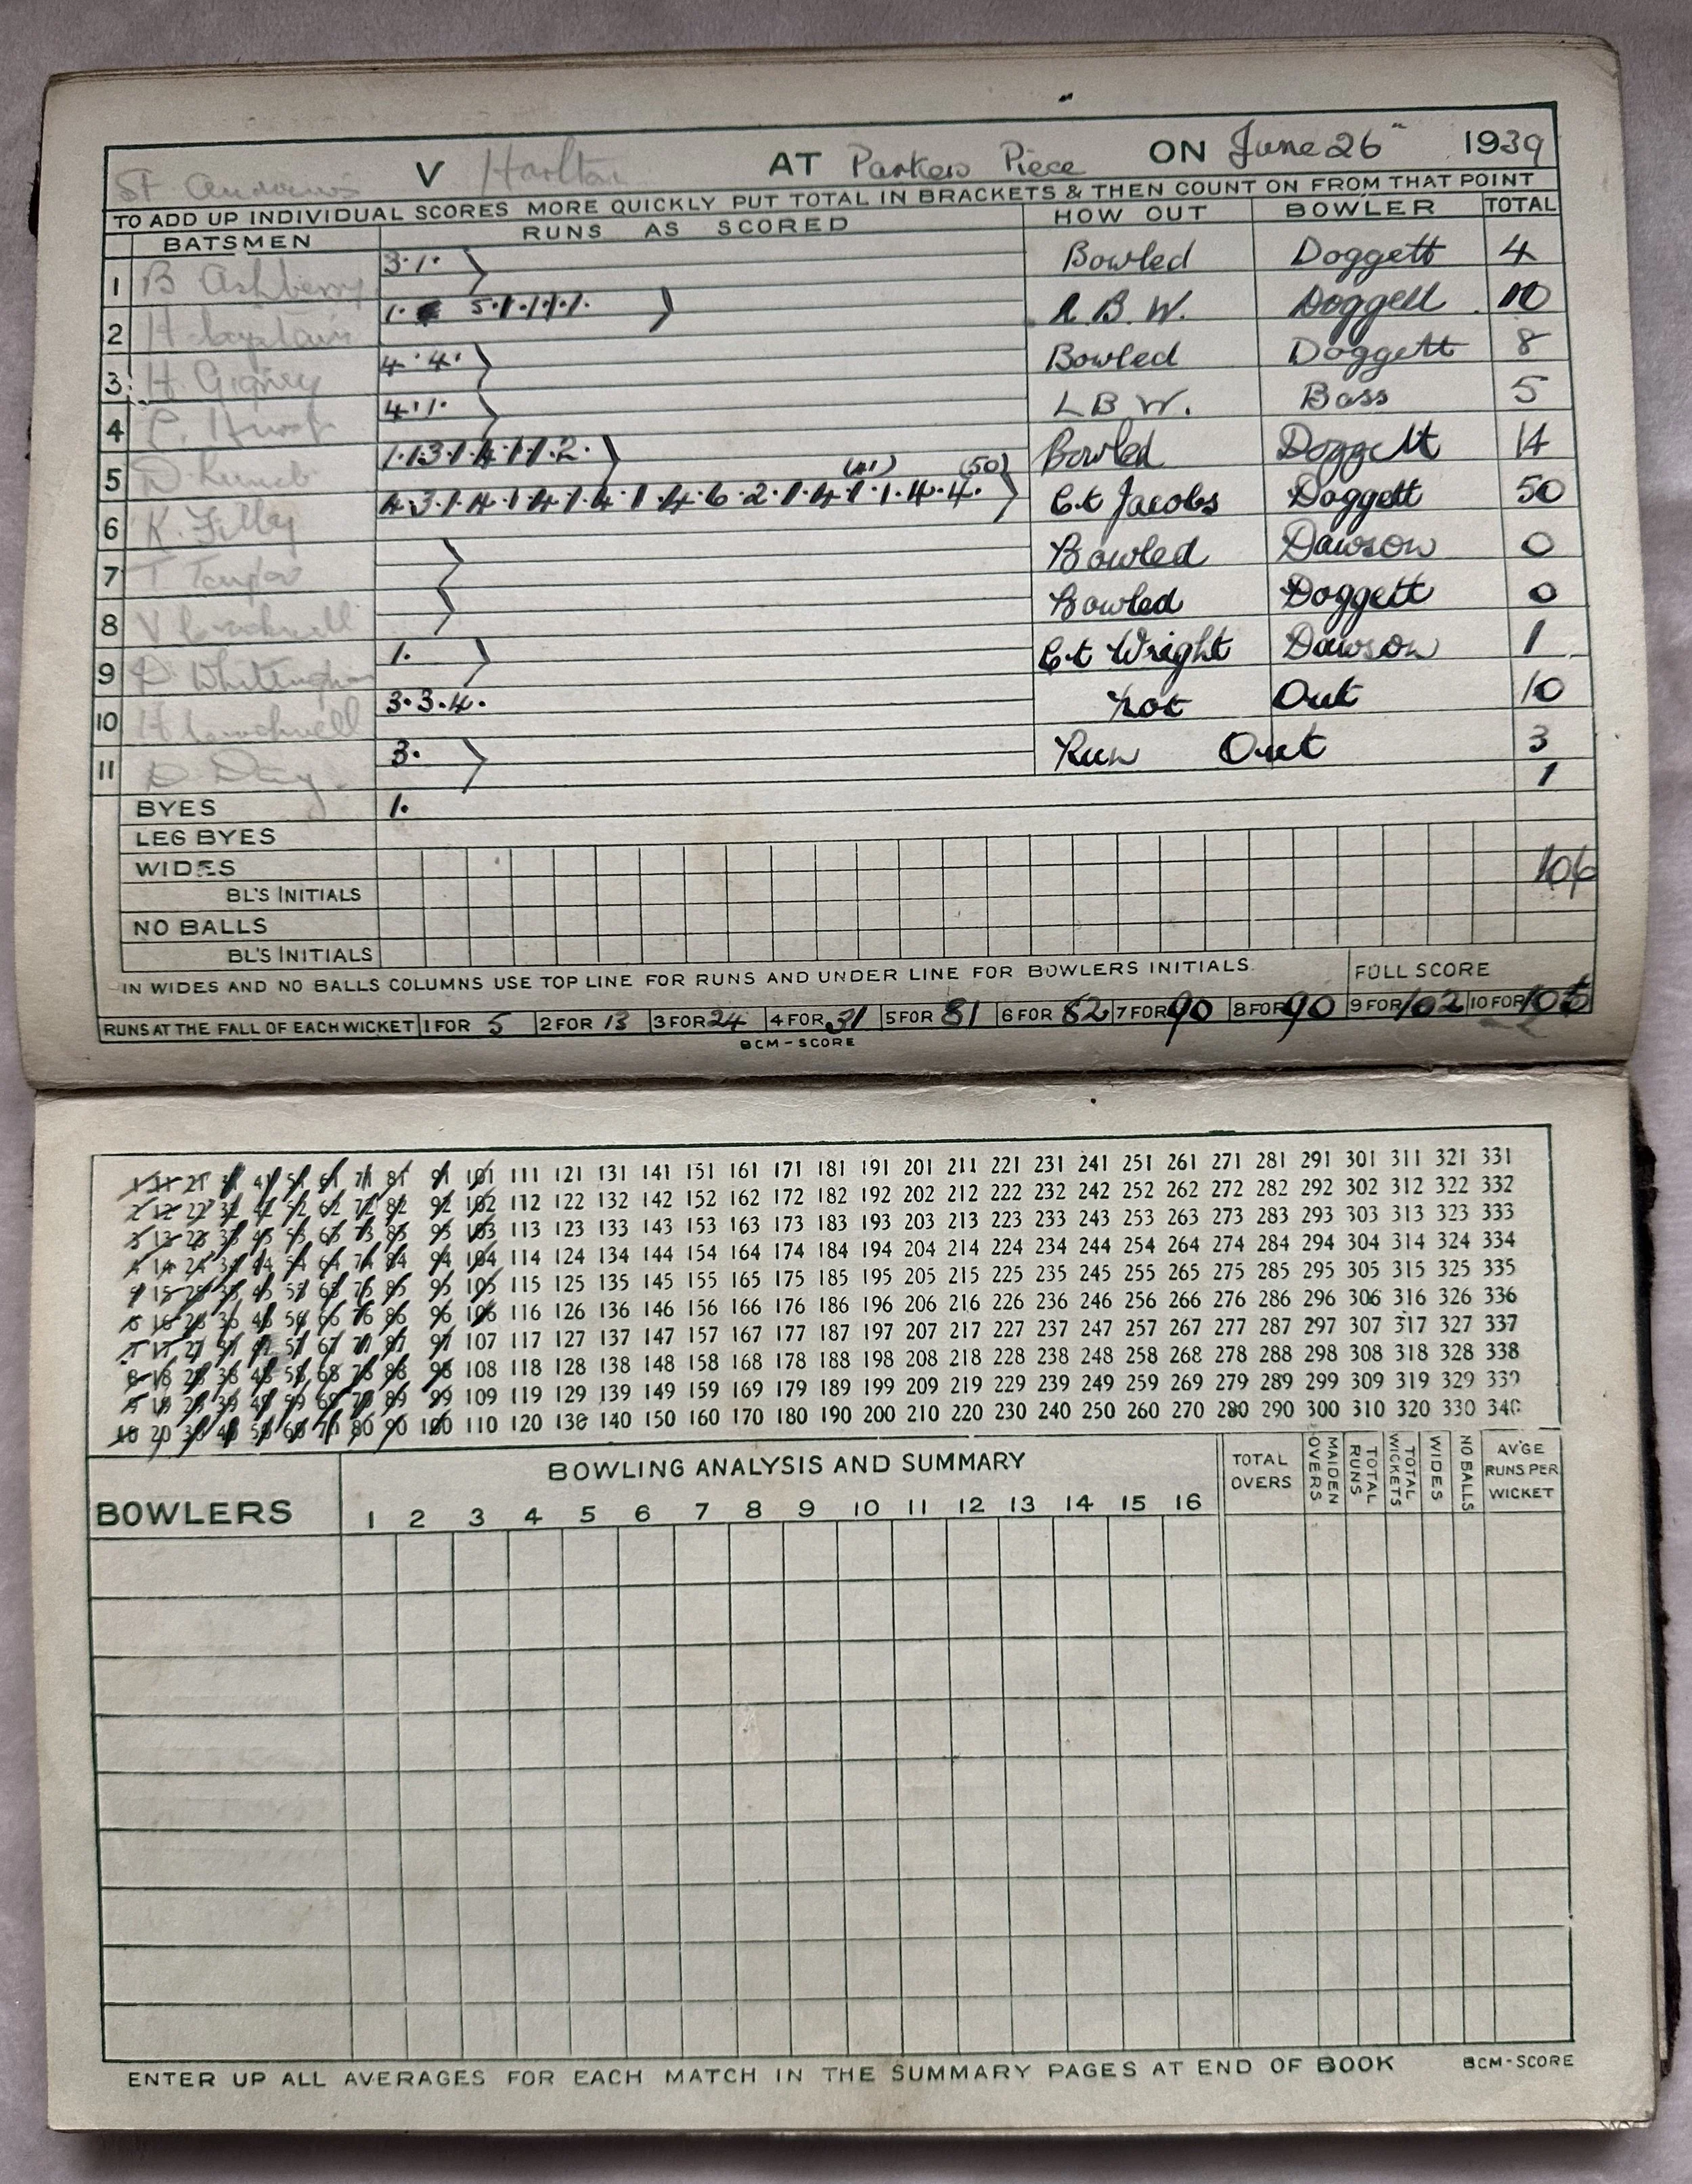 St Andrews V Harlton AT Parkers Piece ON June 26" 1939
TO ADD UP INDIVIDUAL SCORES MORE QUICKLY PUT TOTAL IN BRACKETS & THEN COUNT ON FROM THAT POINT
BATSMEN RUNS AS SCORED HOW OUT BOWLER TOTAL
1 B Ashberry 3·1· Bowled Doggett 4
2 H 1· 5·1·1·1·1· L.B.W. Doggett 10
3 H. Gigney 4·4· Bowled Doggett 8
4 C. Hurst 4·1· L B W. Bass 5
5 D 1·1·3·1·4·1·1·2· Bowled Doggett 14
(41) (50)
6 K. Filby 4·3·1·4·1·4·1·4·1·4·6·2·1·4·1·1·4·4· C.t Jacobs Doggett 50
7 T Taylor Bowled Dawson 0
8 V Cracknell Bowled Doggett 0
9 D Whittingham 1· C.t Wright Dawson 1
10 H Cracknell 3·3·4· Not Out 10
11 D. 3· Run Out 3
BYES 1· 1
LEG BYES
WIDES 106
BL'S INITIALS
NO BALLS
BL'S INITIALS
IN WIDES AND NO BALLS COLUMNS USE TOP LINE FOR RUNS AND UNDER LINE FOR BOWLERS INITIALS. FULL SCORE
RUNS AT THE FALL OF EACH WICKET 1 FOR 5 2 FOR 13 3 FOR 24 4 FOR 31 5 FOR 81 6 FOR 82 7 FOR 90 8 FOR 90 9 FOR 102 10 FOR 106
BCM-SCORE
1 11 21 31 41 51 61 71 81 91 101 111 121 131 141 151 161 171 181 191 201 211 221 231 241 251 261 271 281 291 301 311 321 331
2 12 22 32 42 52 62 72 82 92 102 112 122 132 142 152 162 172 182 192 202 212 222 232 242 252 262 272 282 292 302 312 322 332
3 13 23 33 43 53 63 73 83 93 103 113 123 133 143 153 163 173 183 193 203 213 223 233 243 253 263 273 283 293 303 313 323 333
4 14 24 34 44 54 64 74 84 94 104 114 124 134 144 154 164 174 184 194 204 214 224 234 244 254 264 274 284 294 304 314 324 334
5 15 25 35 45 55 65 75 85 95 105 115 125 135 145 155 165 175 185 195 205 215 225 235 245 255 265 275 285 295 305 315 325 335
6 16 26 36 46 56 66 76 86 96 106 116 126 136 146 156 166 176 186 196 206 216 226 236 246 256 266 276 286 296 306 316 326 336
7 17 27 37 47 57 67 77 87 97 107 117 127 137 147 157 167 177 187 197 207 217 227 237 247 257 267 277 287 297 307 317 327 337
8 18 28 38 48 58 68 78 88 98 108 118 128 138 148 158 168 178 188 198 208 218 228 238 248 258 268 278 288 298 308 318 328 338
9 19 29 39 49 59 69 79 89 99 109 119 129 139 149 159 169 179 189 199 209 219 229 239 249 259 269 279 289 299 309 319 329 339
10 20 30 40 50 60 70 80 90 100 110 120 130 140 150 160 170 180 190 200 210 220 230 240 250 260 270 280 290 300 310 320 330 340
BOWLERS BOWLING ANALYSIS AND SUMMARY TOTAL OVERS MAIDEN OVERS TOTAL RUNS TOTAL WICKETS WIDES NO BALLS AV'GE RUNS PER WICKET
1 2 3 4 5 6 7 8 9 10 11 12 13 14 15 16
ENTER UP ALL AVERAGES FOR EACH MATCH IN THE SUMMARY PAGES AT END OF BOOK BCM-SCORE